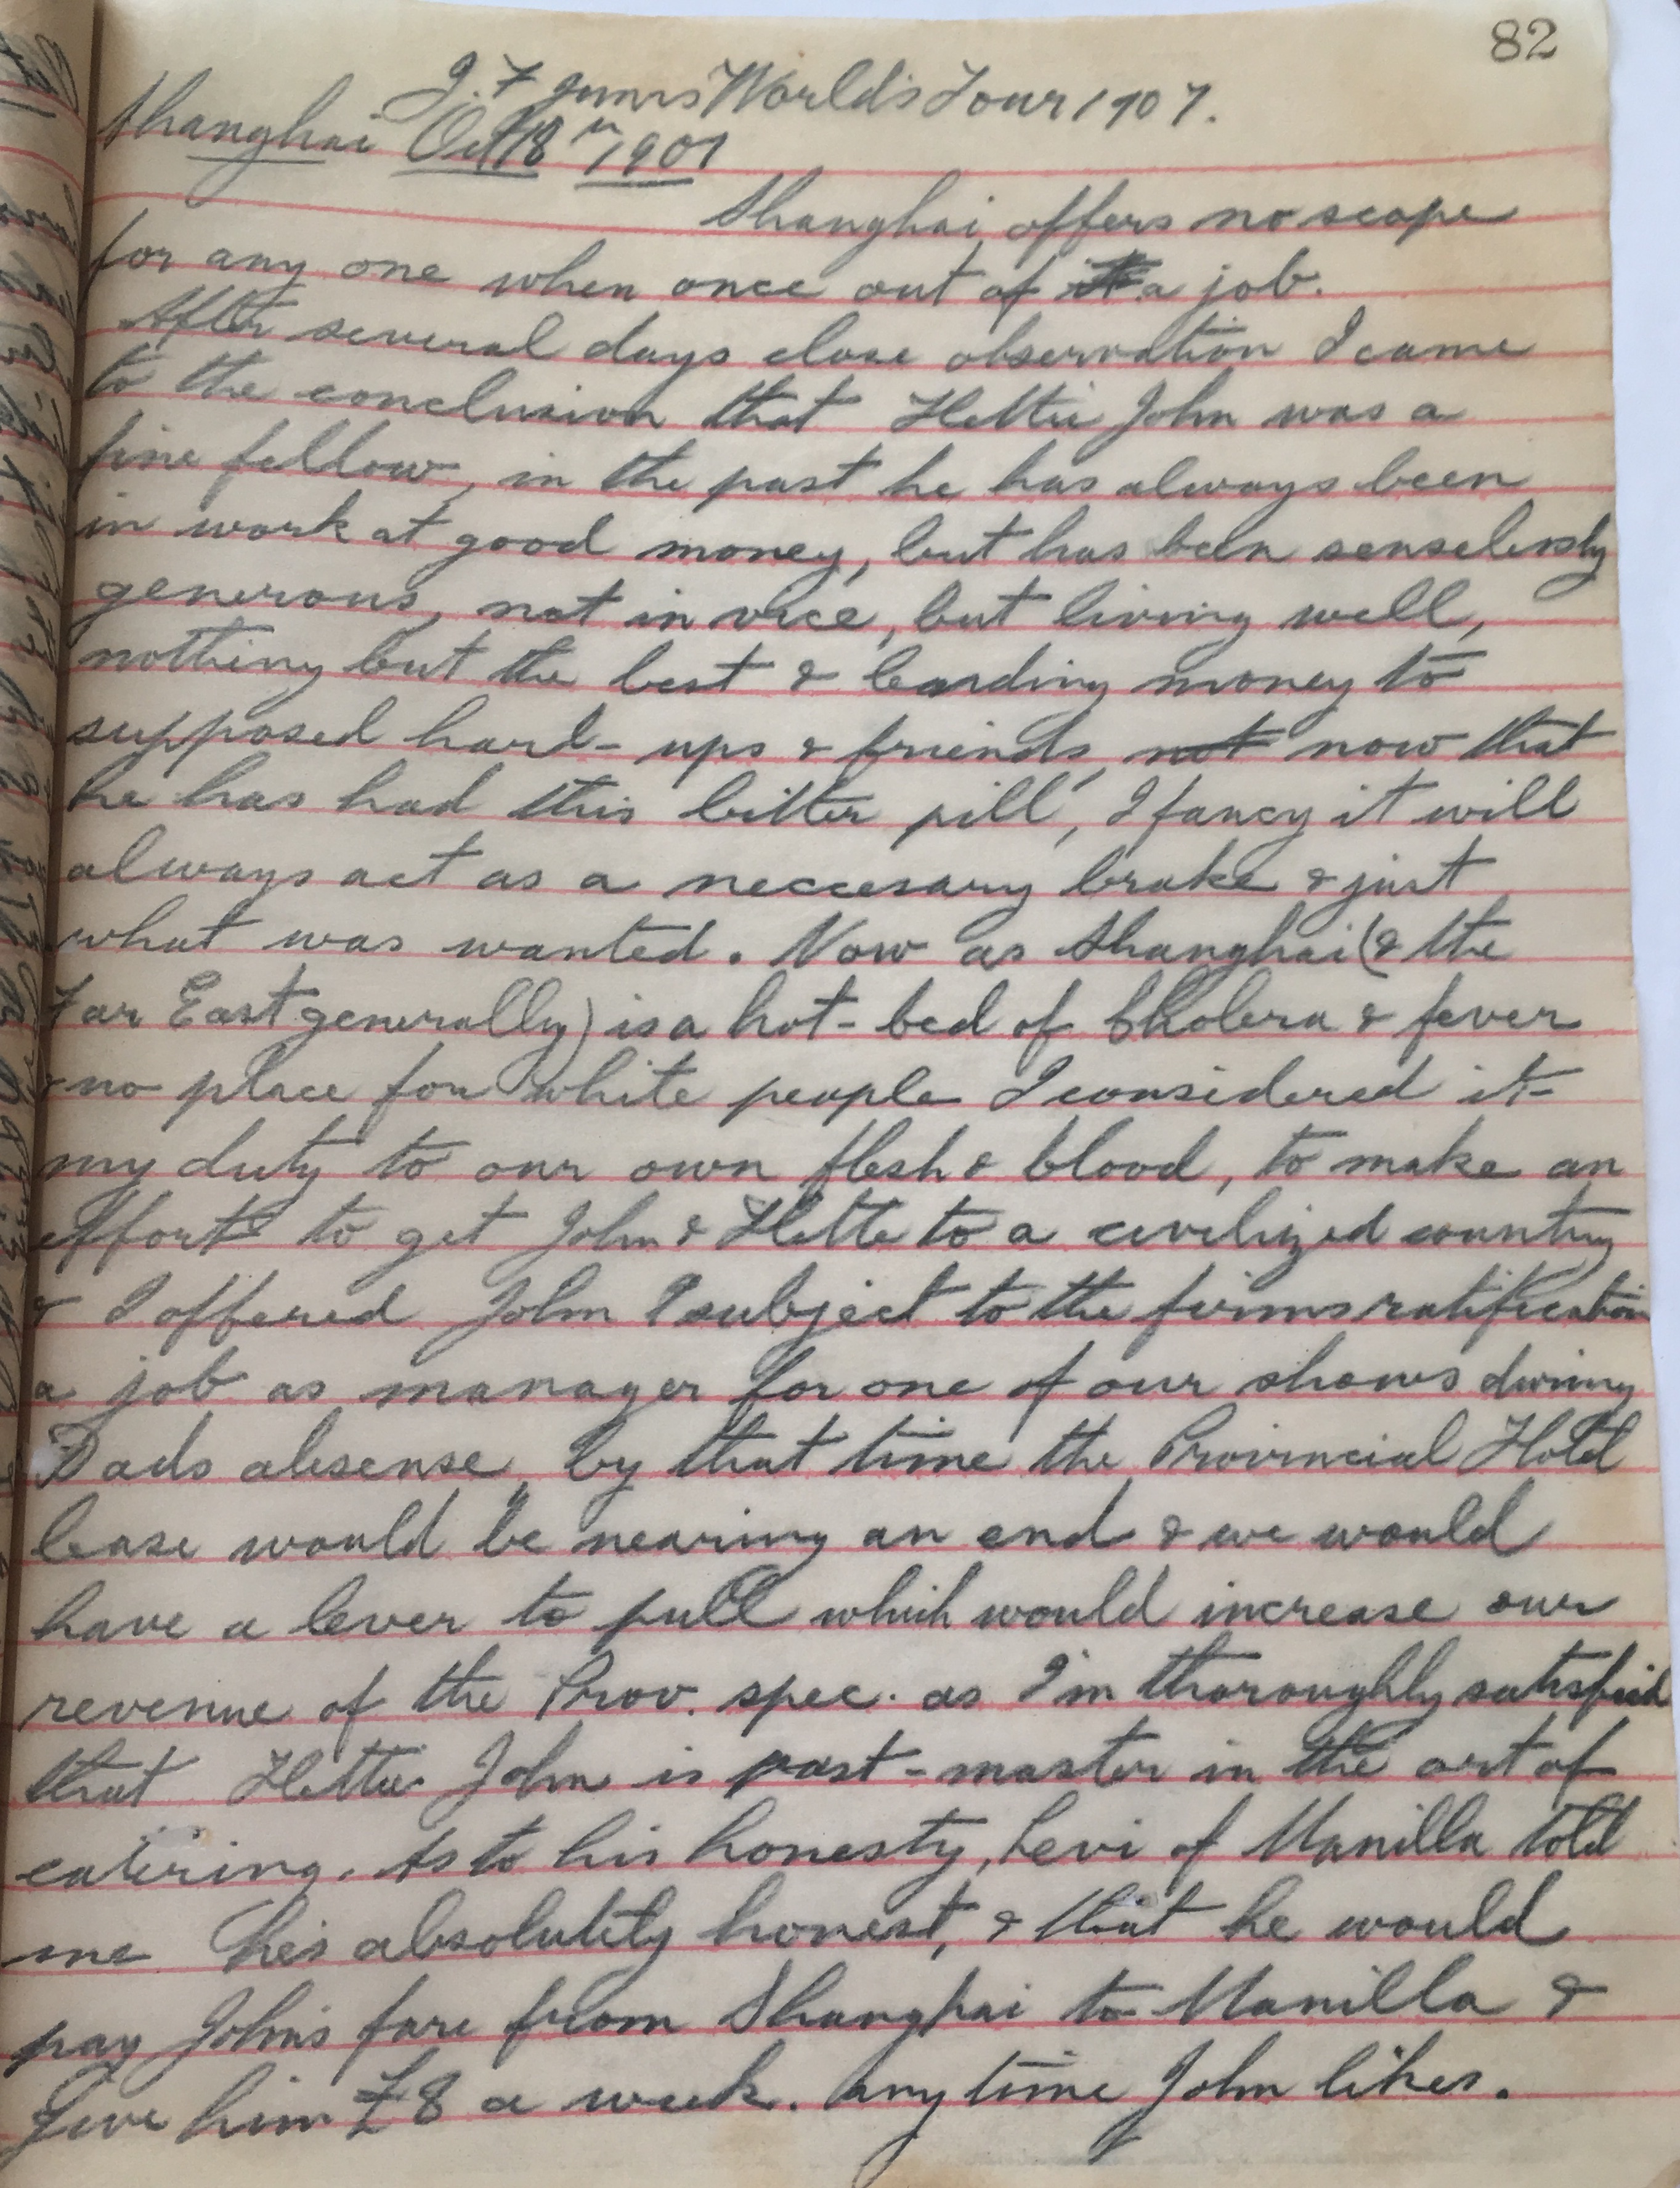 82
J. F Gunn's World's Tour 1907.
Shanghai Oct 18th 1907
Shanghai, offers no scope
for any one when once out of a job.
After several days close observation I came
to the conclusion that Hettie John was a
fine fellow, in the past he has always been
in work at good money, but has been senselessly
generous, not in vice, but living well,
nothing but the best & leanding money to
supposed hard-ups & friends, not now that
he has had this bitter pill, I fancy it will
always act as a neccesary brake & just
what was wanted. Now as Shanghai (& the
Far East generally) is a hot-bed of Cholera & fever
& no place for white people I considered it
my duty to our own flesh & blood, to make an
effort to get John & Hette to a civilized country
& I offered John subject to the firms ratification
a job as manager for one of our shows during
Dads absense, by that time the Provincial Hotel
lease would be nearing an end & we would
have a lever to pull which would increase our
revenue of the Prov. spec. as I'm thoroughly satisfied
that Hettie John is past-master in the art of
catering. As to his honesty, Levi of Manilla told
me he's absolutely honest, & that he would
pay John's fare from Shanghai to Manilla &
give him £8 a week. any time John likes.